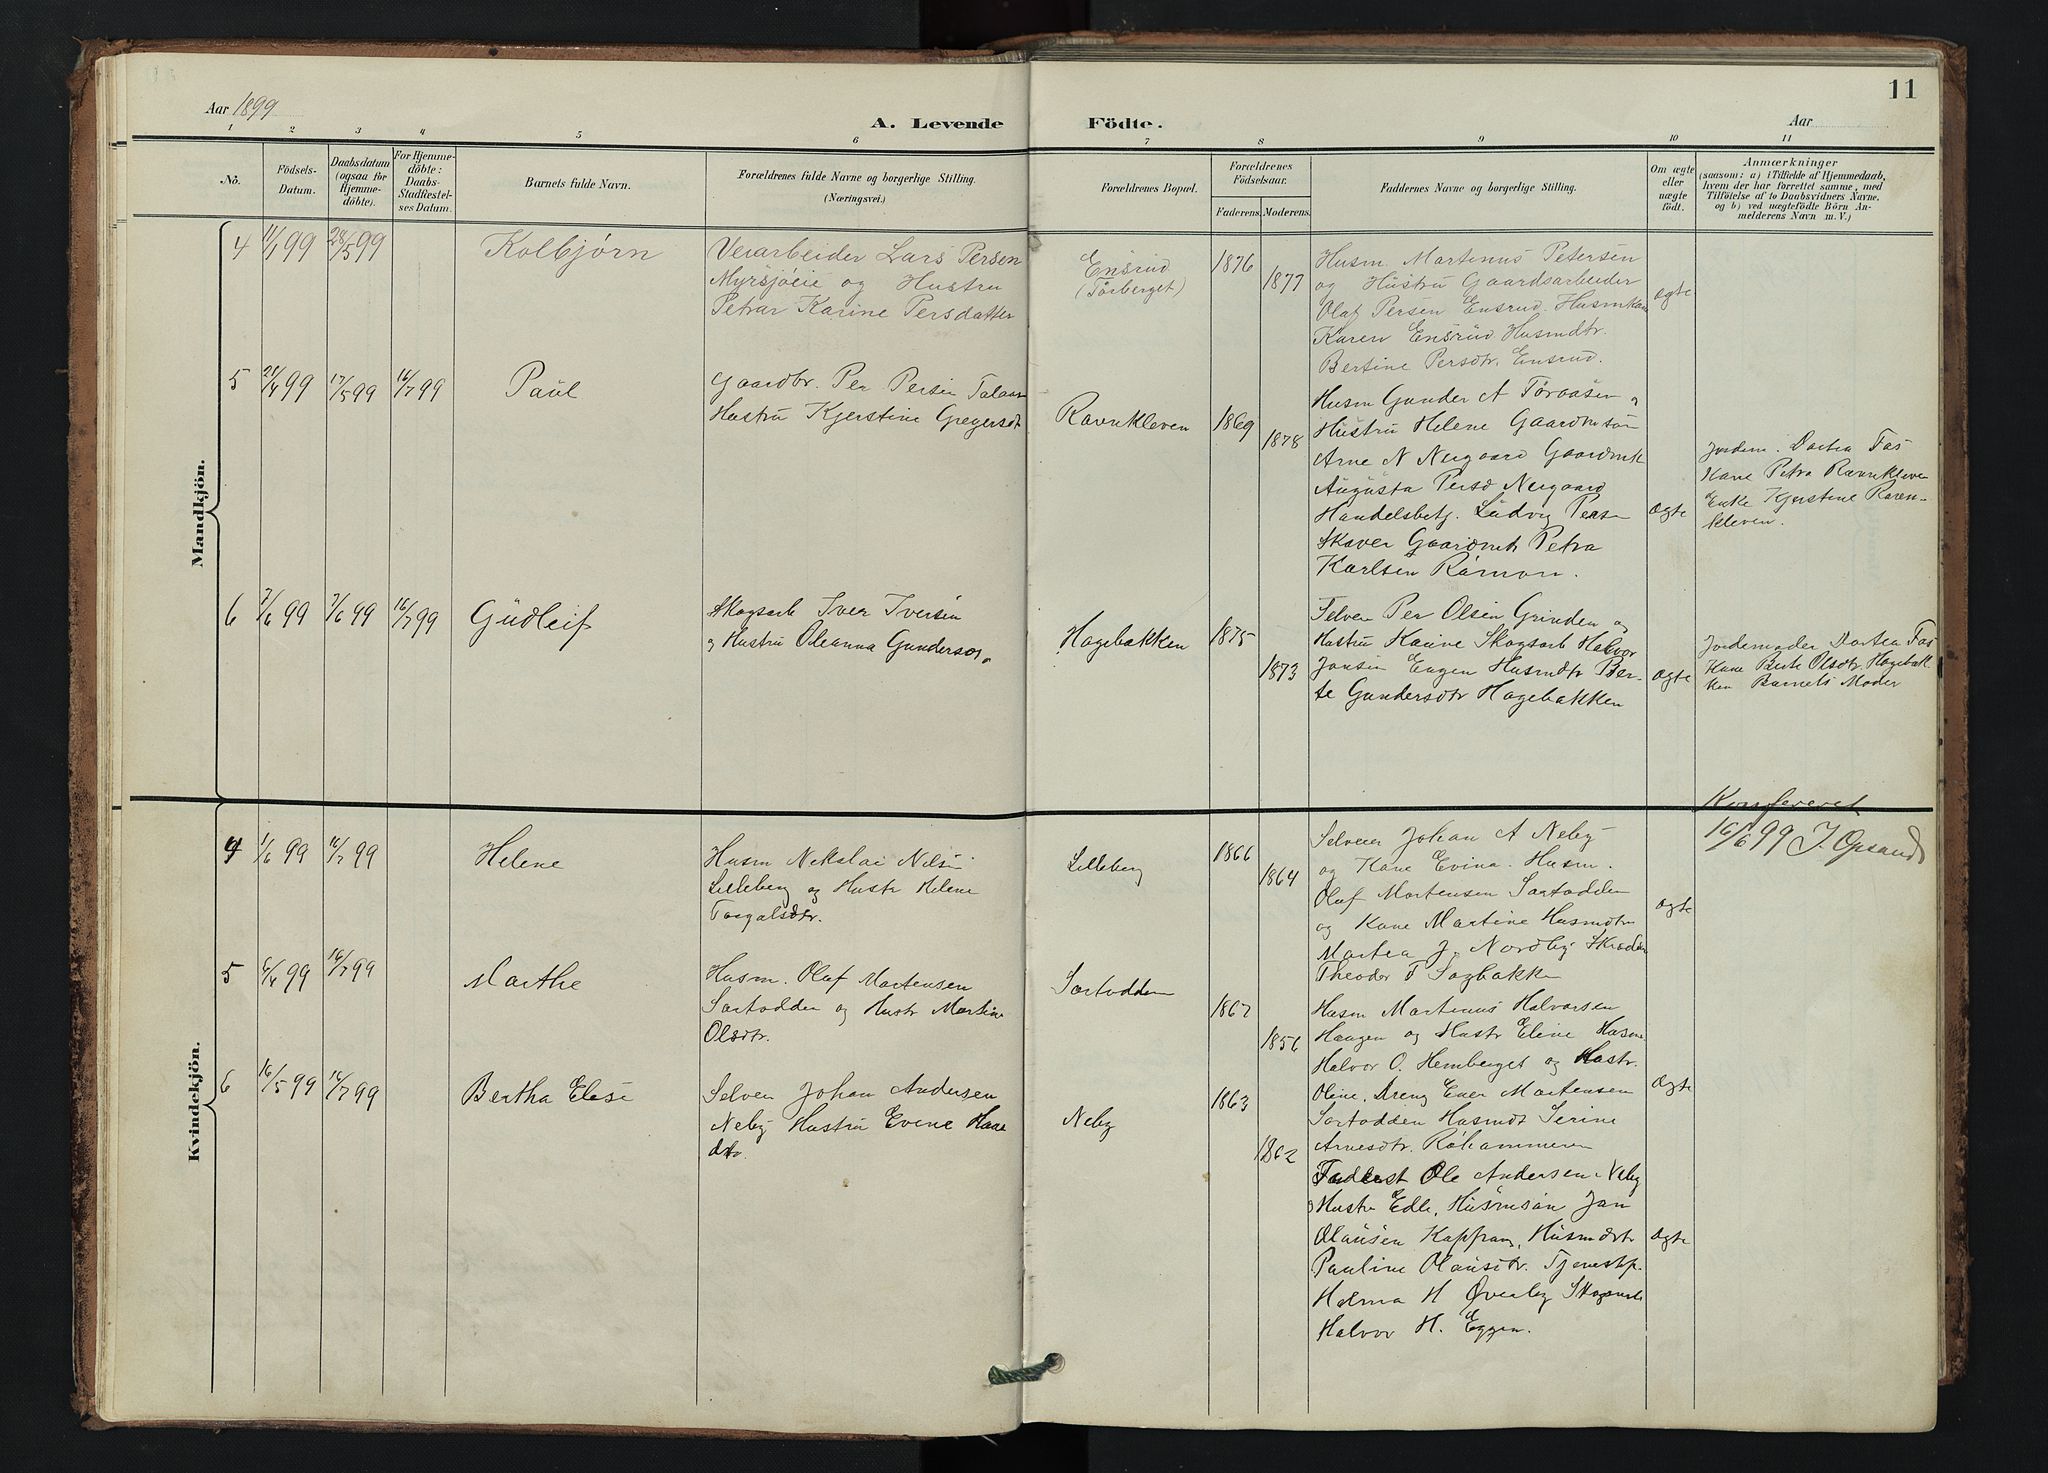 Aar 1899
A. Levende Födte.
11
Aar
1 2 3 4 5 6 7 8 9 10 11
No.
Födsels-Datum.
Daabsdatum (ogsaa for Hjemme-döbte).
For Hjemme-döbte: Daabs-Stadfæstel-ses Datum.
Barnets fulde Navn.
Forældrenes fulde Navne og borgerlige Stilling. (Næringsvei.)
Forældrenes Bopæl.
Forældrenes Födselsaar.
Faderens. Moderens.
Faddernes Navne og borgerlige Stilling.
Om ægte eller uægte födt.
Anmærkninger
(saasom: a) i Tilfælde af Hjemmedaab,
hvem der har forrettet samme, med
Tilföielse af to Daabsvidners Navne,
og b) ved uægtefödte Börn An-
melderens Navn m. V.)
Mandkjön.
4 11/1 99 28/5 99 Kolbjörn
Verarbeider Lars Persen
Myrsjøeie og Hustru
Petra Karine Persdatter
Ensrud
(Törberget)
1876
1877
Husm. Martinus Petersen
og Hustru Gaardsarbeider
Olaf Persen Ensrud. Husmkone
Karen Ensrud Husmdtr.
Bertine Persdtr. Ensrud.
ægte
5 21/4 99 17/5 99 16/7 99 Paul
Gaardbr. Per Persen
Hustru Kjerstine Gregersdt
Ravnkleven
1869
1878
Husm Gunder A Töraasen og
Hustru Helene Gaardmsön
Arne N Nergaard Gaardmk
Augusta Persd Nergaard
Handelsbetj. Ludvig Pers
Skaver Gaardmdt Petra
Karlsen Römon.
ægte
Jordem. Dortea Fas
Kone Petra Ravnkleven
Enke Kjerstine Raven-
kleven.
6 7/6 99 7/6 99 16/7 99 Gudleif
Skogsarb Iver Iversen
og Hustru Oleanna Gundersd.
Hagebakken
1875
1873
Selveier Per Olsen Grinden og
Hustru Karine Skogsarb Halvor
Jonsen Engen Husmdtr Ber-
te Gundersdtr Hagebakken
ægte
Jordemoder Dortea Fas
Kone Berte Olsdtr. Hagebak-
ken Barnets Moder
Kvindekjön.
Konfereret
16/6 99 J. Opsand
4 1/6 99 16/7 99 Helene
Husm Nikolai Nilsen
Lilleberg og Hustr Helene
Torgalsdtr.
Lilleberg
1866
1864
Selveier Johan A Neby
og Kone Evina. Husm.
Olaf Mortensen Sortodden
og Kone Martine Husmdtr
Martea J. Nordby Skrædder
Theodor T Sagbakken
ægte
5 6/4 99 16/7 99 Marthe
Husm. Olaf Mortensen
Sortodden og Hustr Martine
Olsdtr.
Sortodden
1867
1856
Husm Martinus Halvorsen
Haugen og Hustr Eline Husm
Halvor O. Hemberget og Hustr.
Oline, Dreng Even Mortensen
Sortodden Husmdt Serine
Arnesdtr. Röhammeren
ægte
6 16/5 99 16/7 99 Bertha Elise
Selveier Johan Andersen
Neby Hustru Evine Haa
dtr.
Neby
1863
1862
Ole Andersen Neby
og Hustr Edle, Husmsön Jan
Olausen Kapfrang, Husmdtr
Pauline Olausdtr. Tjenestp.
Halma H Överby
Halvor H. Eggen.
ægte